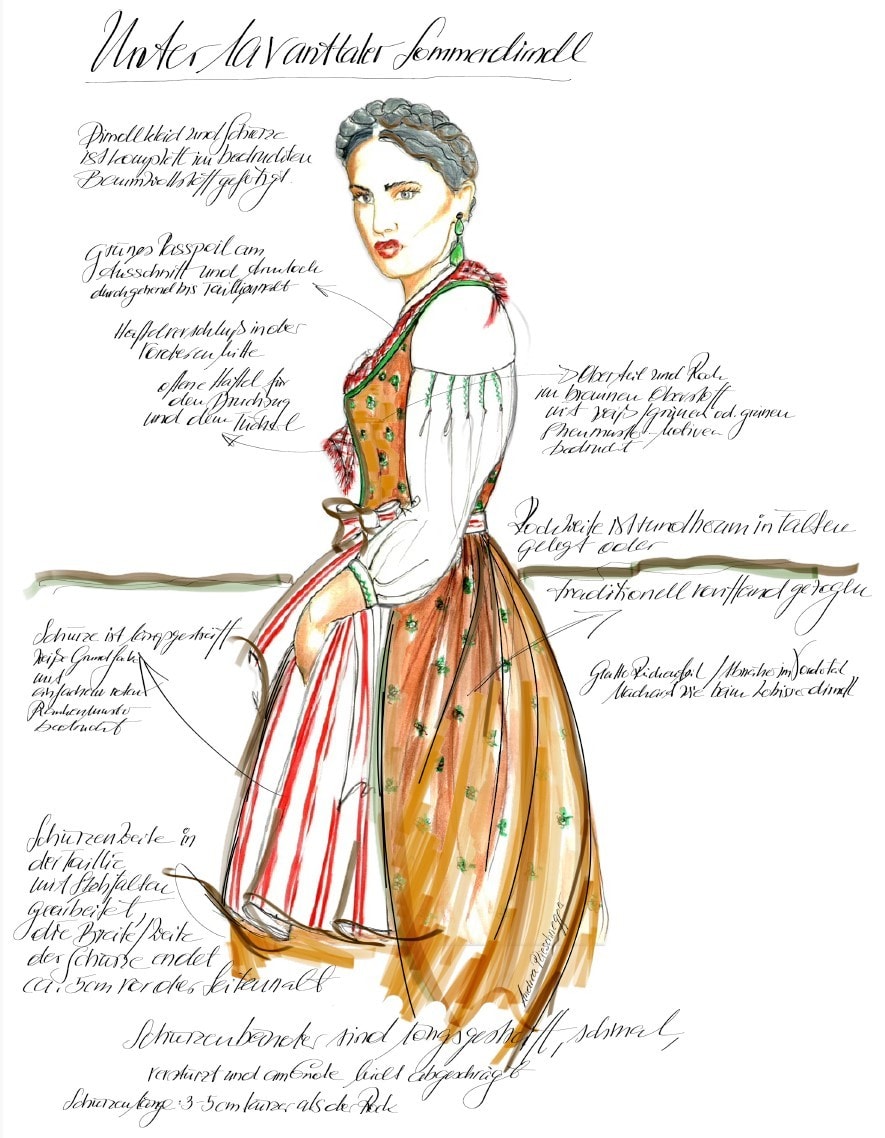 Unterlavanttaler Sommerdirndl
Dirndlkleid und Schürze
ist komplett im bedruckten
Baumwollstoff gefertigt
Grünes Passpoil am
Ausschnitt und Armloch
durchgehend bis Taillennaht
Haftelverschluß in der
Vorderen Mitte
offene Haftel für
den Druchzug
und dem Tüchel
Oberteil und Rock
im braunen Oberstoff
mit weiß/grünen od. grünen
motiven
bedruckt
Rockweite ist rundherum in Falten
gelegt oder
traditionell von Hand gezogen
Schürze ist längsgestreift
weiße Grundfarbe
mit
einfachem roten
Rankenmuster
bedruckt
Glatte /Abnäher im Vorderteil
wie beim
Schürzenweite in
der Taillie
mit Stehfalten
gearbeitet,
die Breite/Weite
der Schürze endet
ca. 5cm vor der Seitennaht
Schürzenbänder sind längsgestreift, schmal,
verstürzt und am Ende leicht abgeschrägt
Schürzenlänge: 3-5cm kürzer als der Rock